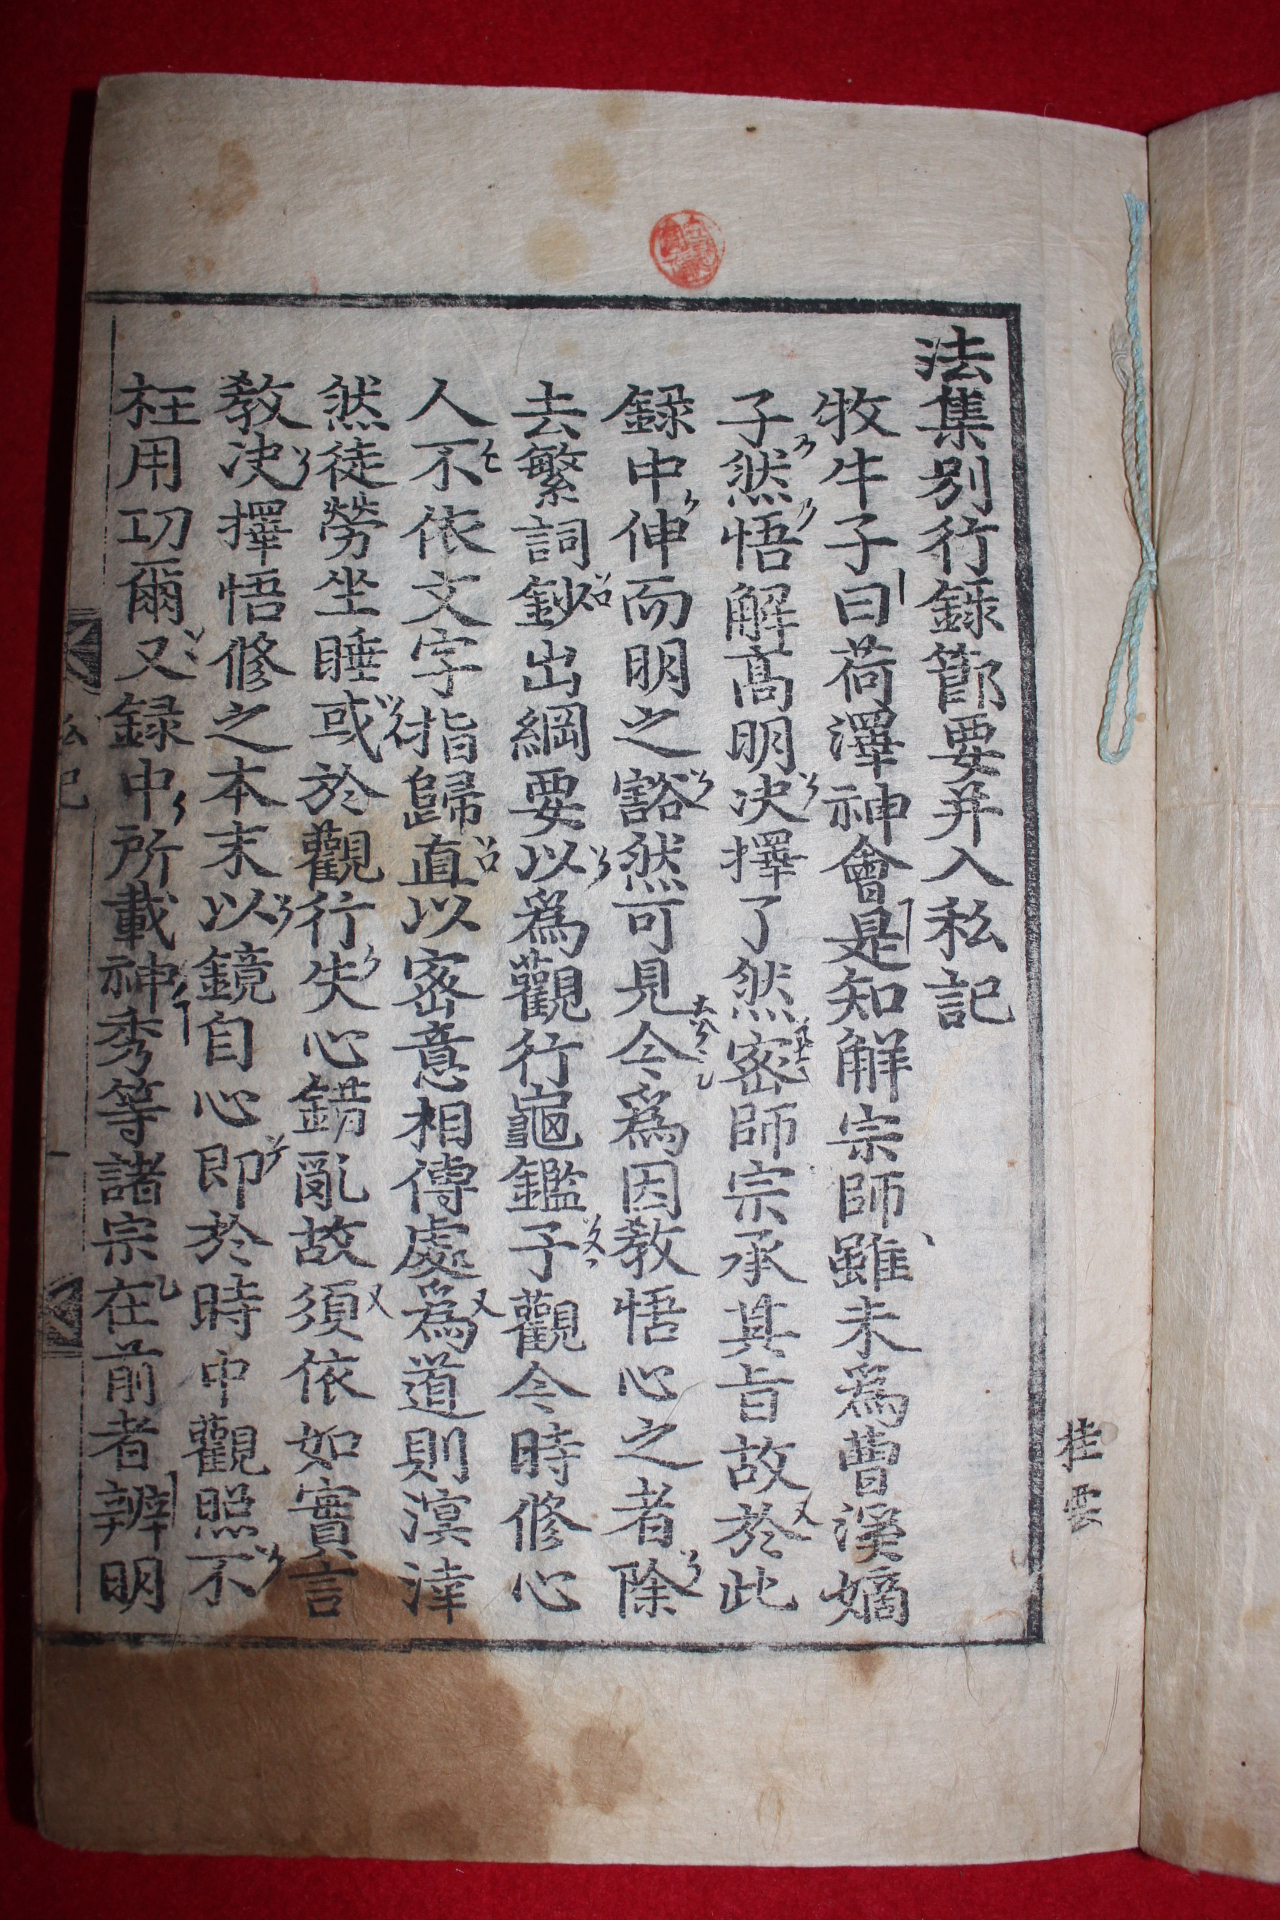 法集別行錄節要幷入私記
牧牛子曰荷澤神會是知解宗師雖未爲曹溪嫡
子然悟解高明决擇了然密師宗承其旨故於此
錄中伸而明之豁然可見今爲因敎悟心之者除
去繁詞鈔出綱要以爲觀行龜鑑予觀今時修心
人不依文字指歸直以密意相傳處爲道則溟涬
然徒勞坐睡或於觀行失心錯亂故須依如實言
敎决擇悟修之本末以鏡自心卽於時中觀照不
枉用功爾又錄中所載神秀等諸宗在前者辨明
私記
桂雲